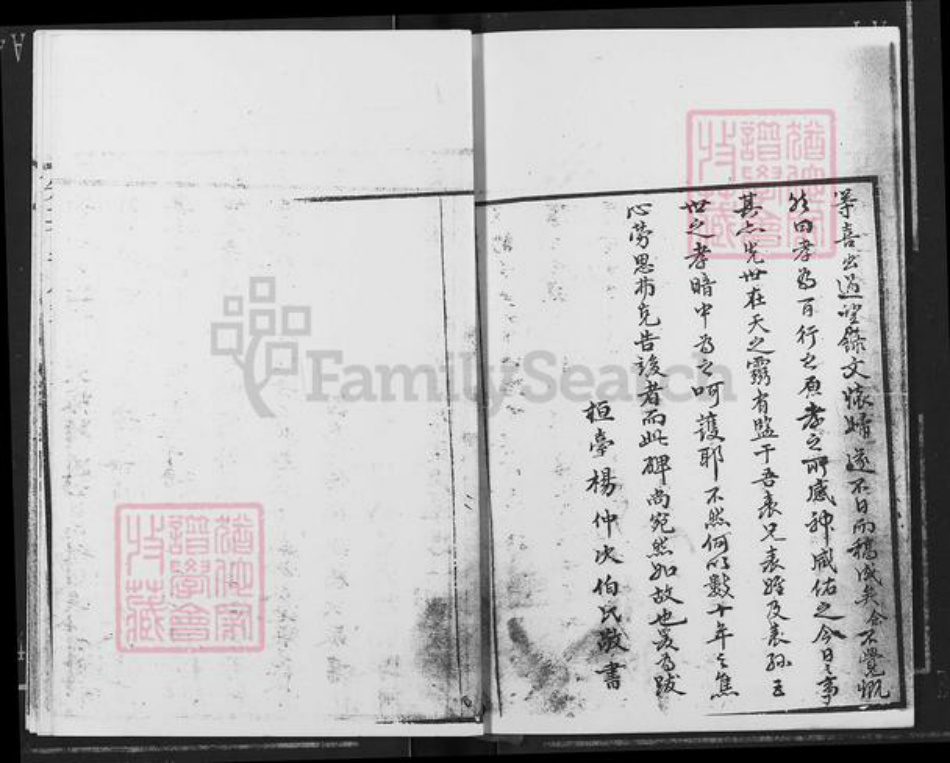 喜出過望錄文懷歸遂不日而稿成矣余不覺慨
然曰孝為百行之原孝之所感神咸佑之今日之事
其亦先世在天之靈有監于吾表兄表姪及表孫三
世之孝暗中為之呵護耶不然何以數十年之焦
心勞思未克告竣者而此碑尚宛然如故也爰為跋
桓臺楊仲次伯氏敬書
FamilySearch
譜學會
收藏
譜學會
收藏